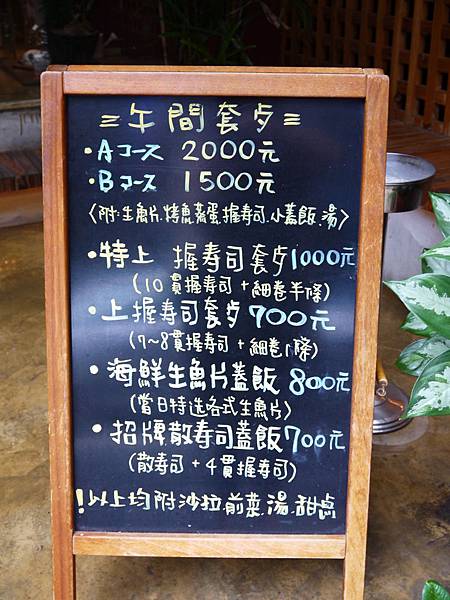 =午間套歺=
・Aコース 2000元
・Bコース 1500元
〈附:生魚片.烤魚.蒸蛋.握寿司.小蓋飯.湯〉
・特上 握寿司套歺1000元
(10貫握寿司+細卷半條)
・上握寿司套歺700元
(7~8貫握寿司+細卷1條)
・海鮮生魚片蓋飯 800元
(當日特选各式生魚片)
・招牌散寿司蓋飯700元
(散寿司+4貫握寿司)
!以上均附沙拉.前菜.湯.甜点